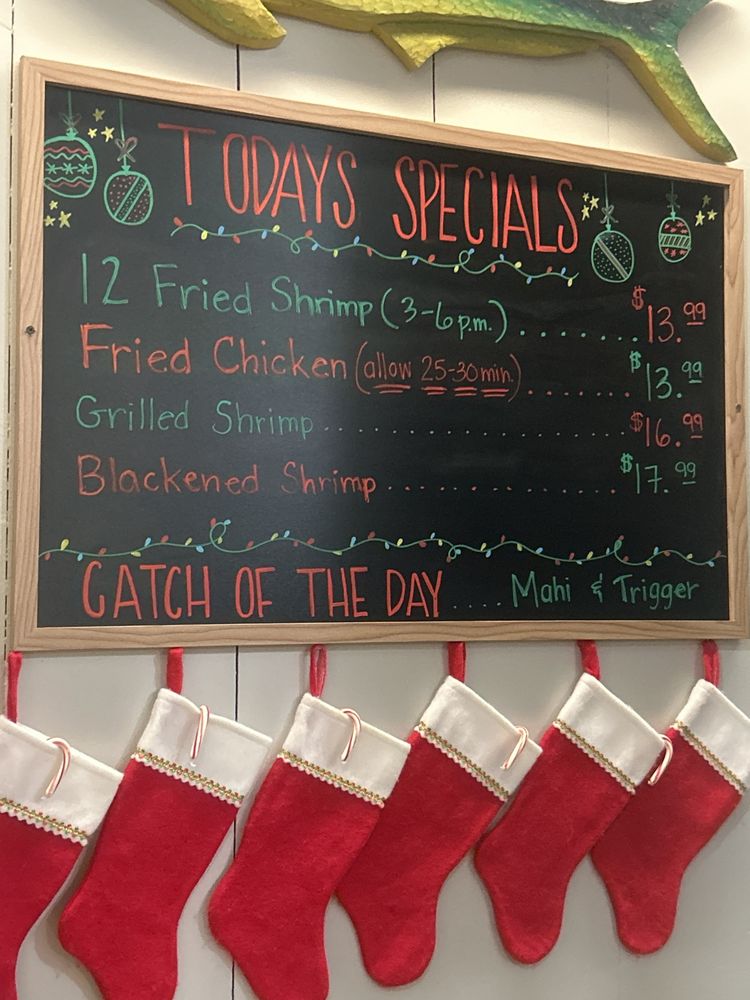 TODAYS SPECIALS
12 Fried Shrimp (3-6 p.m.) ....... $13.99
Fried Chicken (allow 25-30 min.) ....... $13.99
Grilled Shrimp ....................... $16.99
Blackened Shrimp .................. $17.99
CATCH OF THE DAY .... Mahi & Trigger